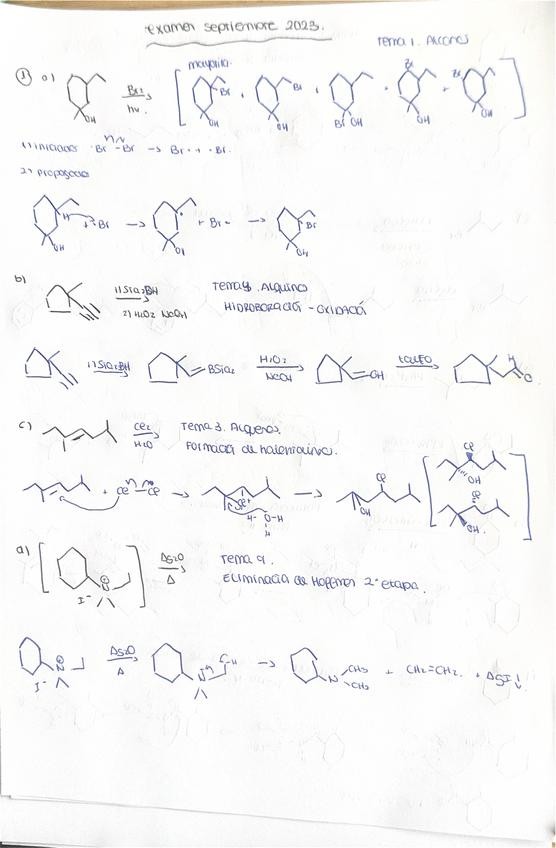 examen septiembre 2023.
Tema 1. Alcanos
① a) OH Br₂ hν. mayorit. Br OH + Br OH + Br OH + Br OH + Br OH
1) Iniciación Br-Br → Br· + ·Br.
2) Propagación
H OH + ·Br → · OH + Br- → Br OH
b) 1) Sia₂BH 2) H₂O₂ NaOH Tema 4. Alquino
HIDROBORACIÓN - OXIDACIÓN
1) Sia₂BH BSia₂ H₂O₂ NaOH OH tauto H O
c) Cl₂ H₂O Tema 3. Alquenos.
Formación de halohidrina.
+ Cl-Cl → Cl⁺ H-O-H H → Cl OH Cl OH Cl OH.
d) N I⁻ Ag₂O Δ Tema 9.
Eliminación de Hoffman 2ª etapa.
N I⁻ Ag₂O Δ N H → N CH₃ CH₃ + CH₂=CH₂. + AgI↓